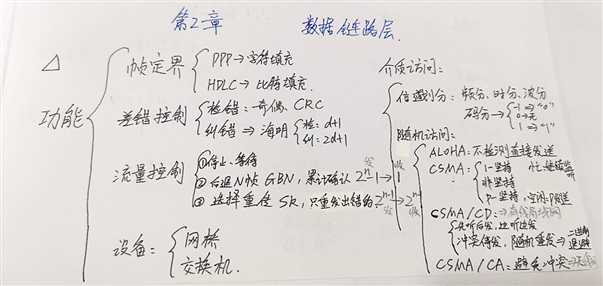 第2章 数据链路层.
功能
帧定界
PPP→字符填充
HDLC→比特填充.
差错控制
检错:奇偶、CRC
纠错⇒海明
检:d+1
纠:2d+1
流量控制
①停止、等待
②后退N帧 GBN,累计确认 2ⁿ-1→1
发 收
③选择重传 SR,只重发出错的 2ⁿ⁻¹→2ⁿ⁻¹
发 收
设备:
网桥
交换机.
介质访问:
信道划分:频分、时分、波分
码分→
1→"0"
0→无
1→"1"
随机访问:
ALOHA:不检测直接发送
CSMA:
1-坚持 忙:继续监听
非坚持
p-坚持,空闲:P发送
CSMA/CD:⇒有线局域网
先听后发,边听边发
冲突停发,随机重发⇒二进制退避
CSMA/CA:避免冲突⇒